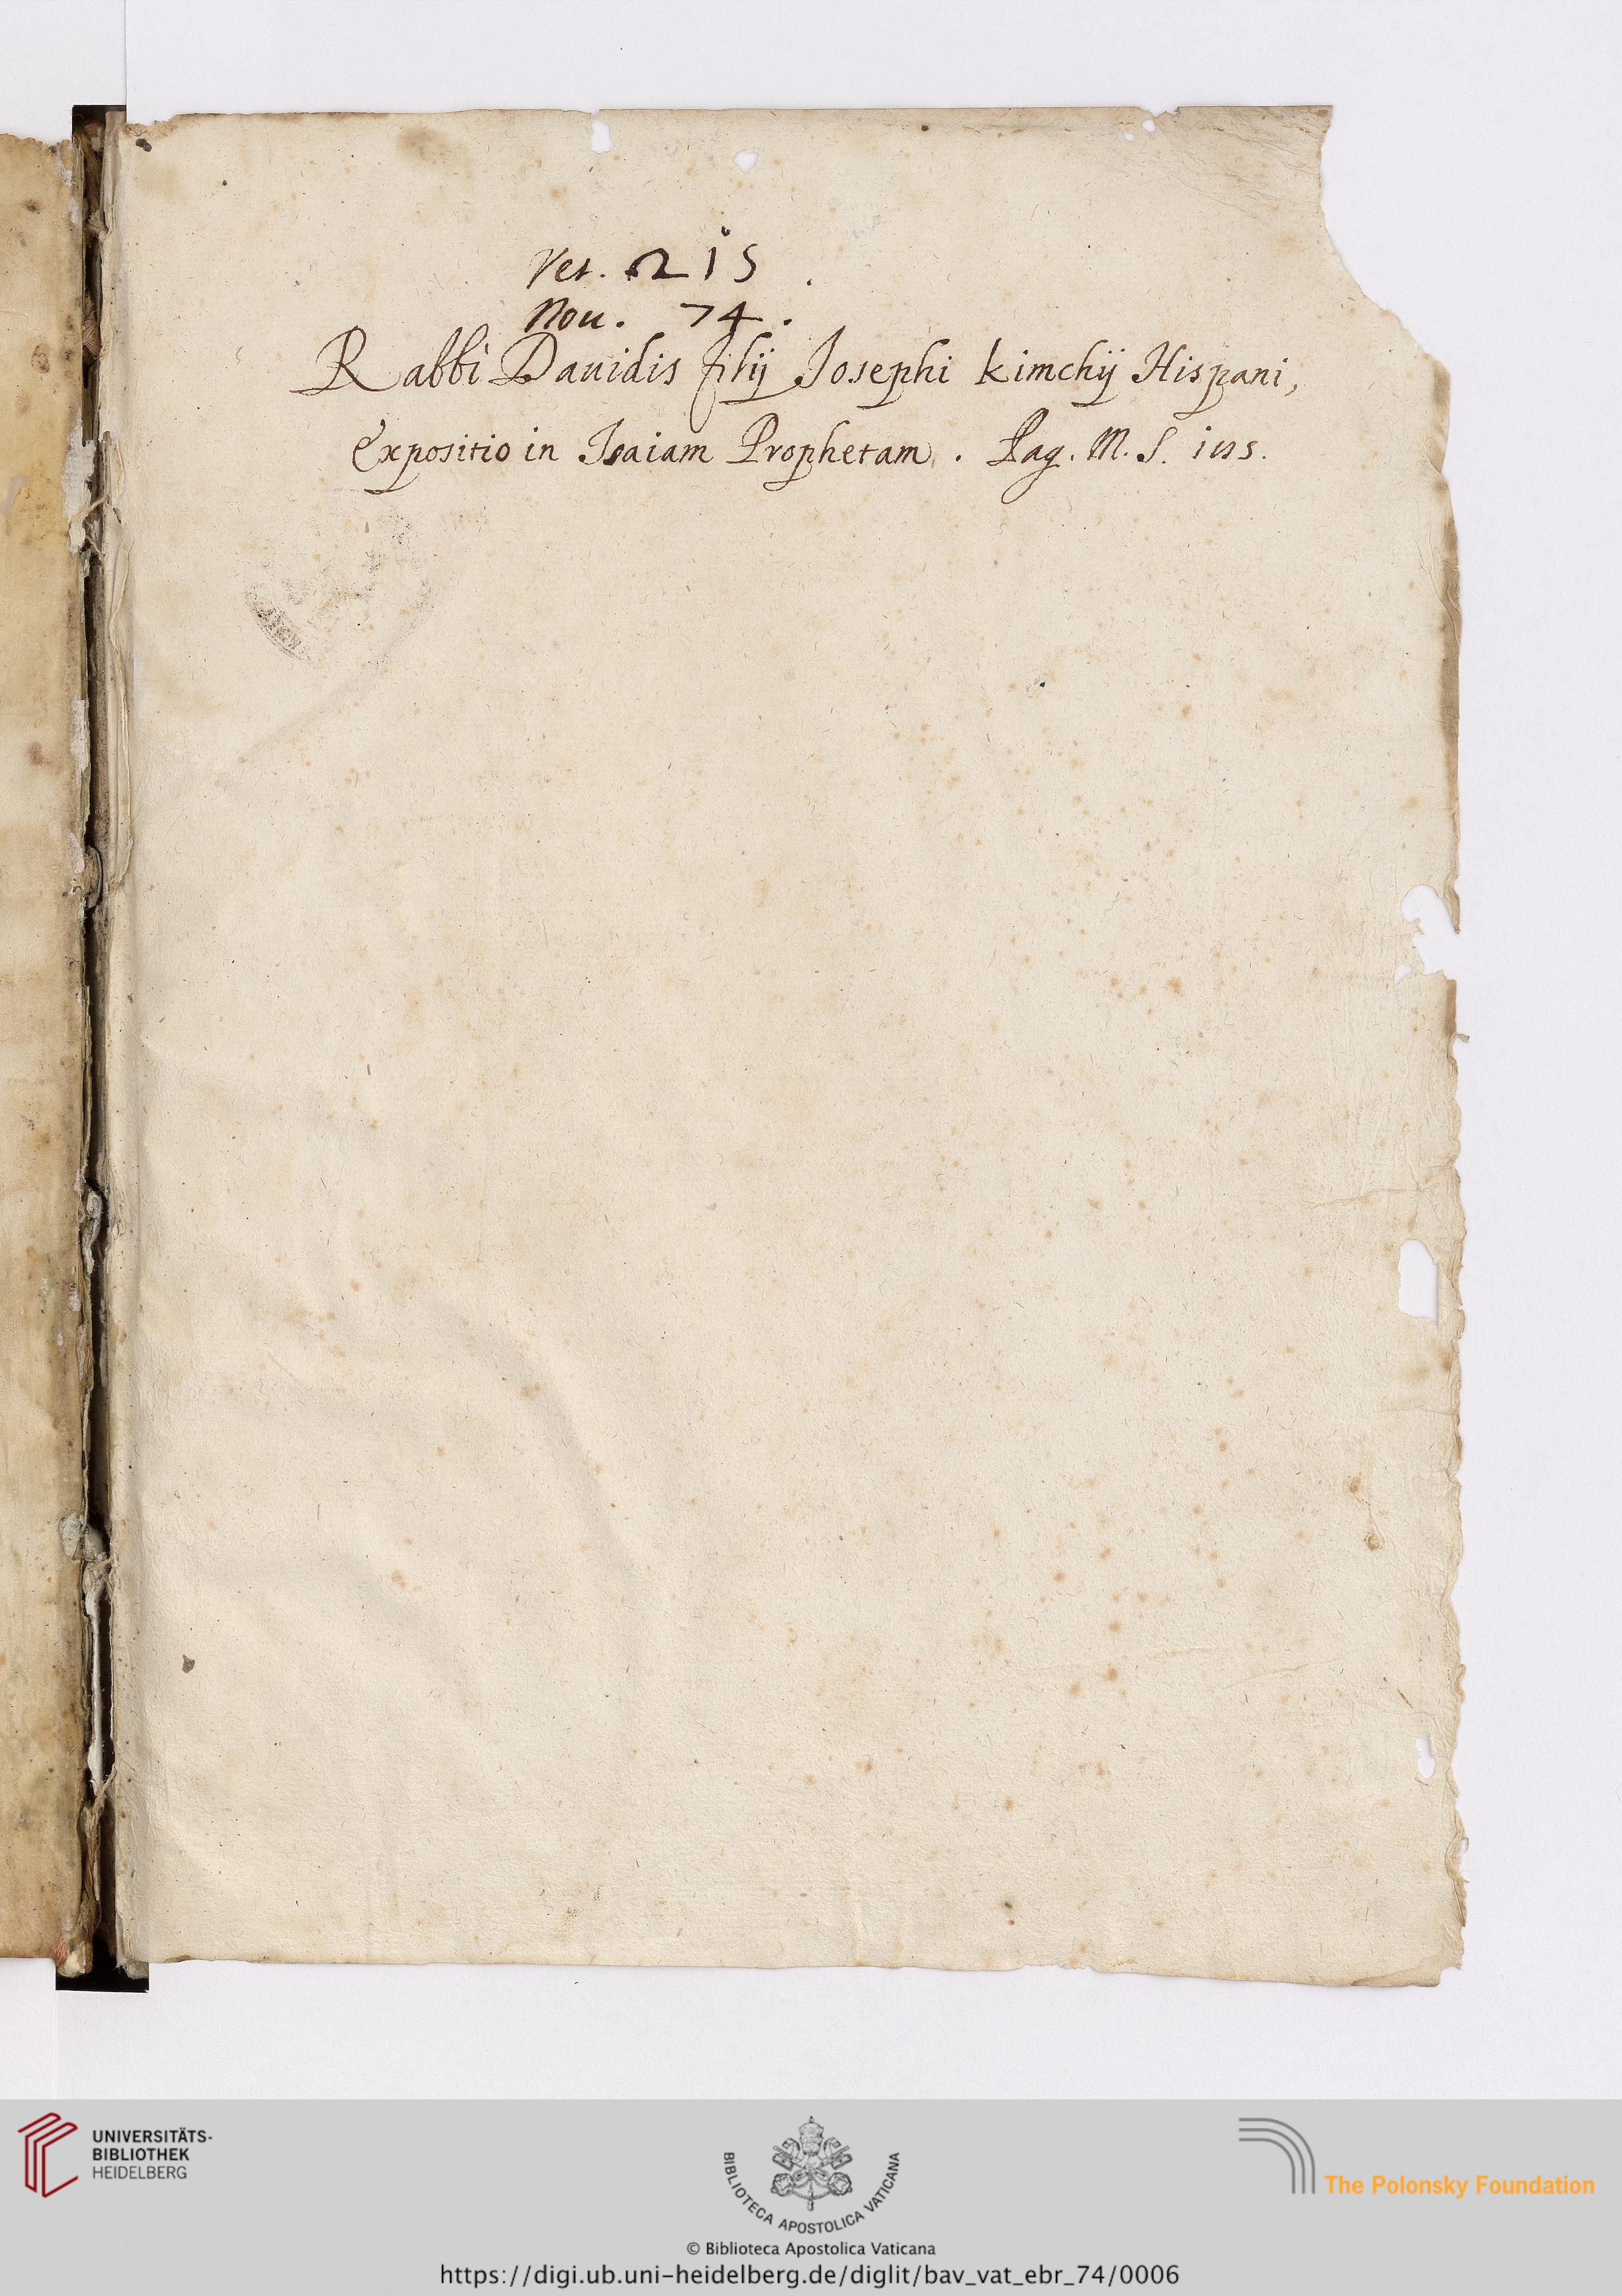 Vet. 215.
Nou. 74.
Rabbi Dauidis filij Josephi kimchij Hispani,
Expositio in Isaiam Prophetam. Pag. M. S.
UNIVERSITÄTS-
BIBLIOTHEK
HEIDELBERG
BIBLIOTECA APOSTOLICA VATICANA
The Polonsky Foundation
© Biblioteca Apostolica Vaticana
https://digi.ub.uni-heidelberg.de/diglit/bav_vat_ebr_74/0006